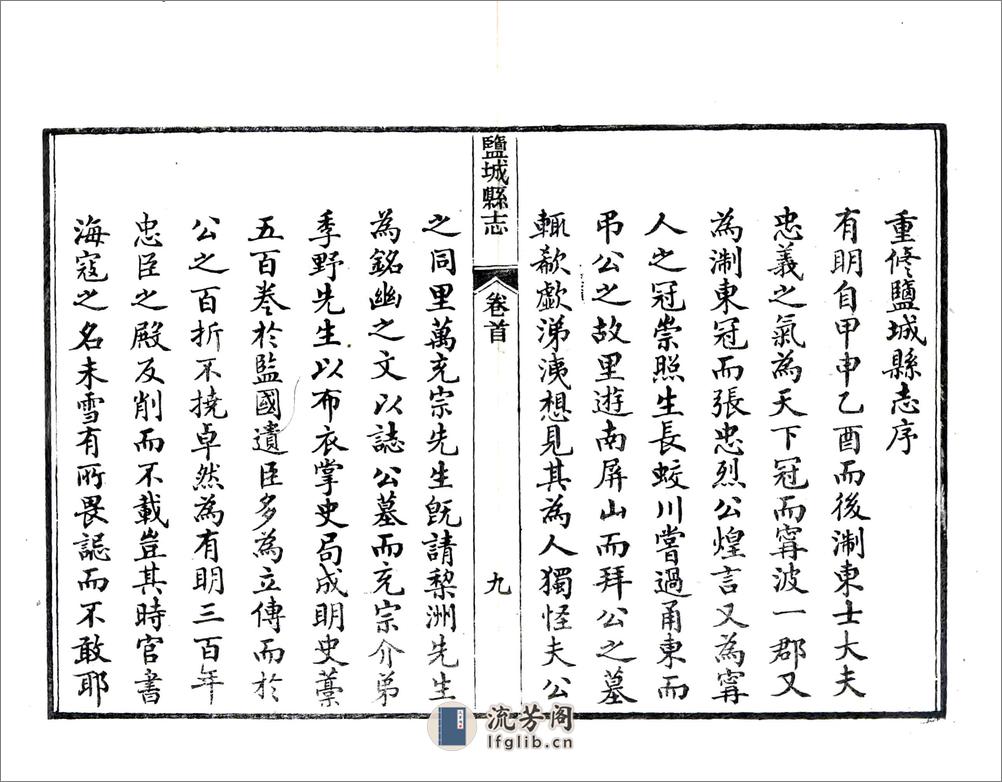 重修鹽城縣志序
有明自甲申乙酉而後浙東士大夫
忠義之氣為天下冠而甯波一郡又
為浙東冠而張忠烈公煌言又為甯
人之冠崇照生長蛟川嘗過甬東而
弔公之故里遊南屏山而拜公之墓
輒欷歔涕洟想見其為人獨怪夫公
鹽城縣志
卷首
九
之同里萬充宗先生既請梨洲先生
為銘幽之文以誌公墓而充宗介弟
季野先生以布衣掌史局成明史藁
五百卷於監國遺臣多為立傳而於
公之百折不撓卓然為有明三百年
忠臣之殿反削而不載豈其時官書
海寇之名未雪有所畏誋而不敢耶
流芳阁
lfglib.cn